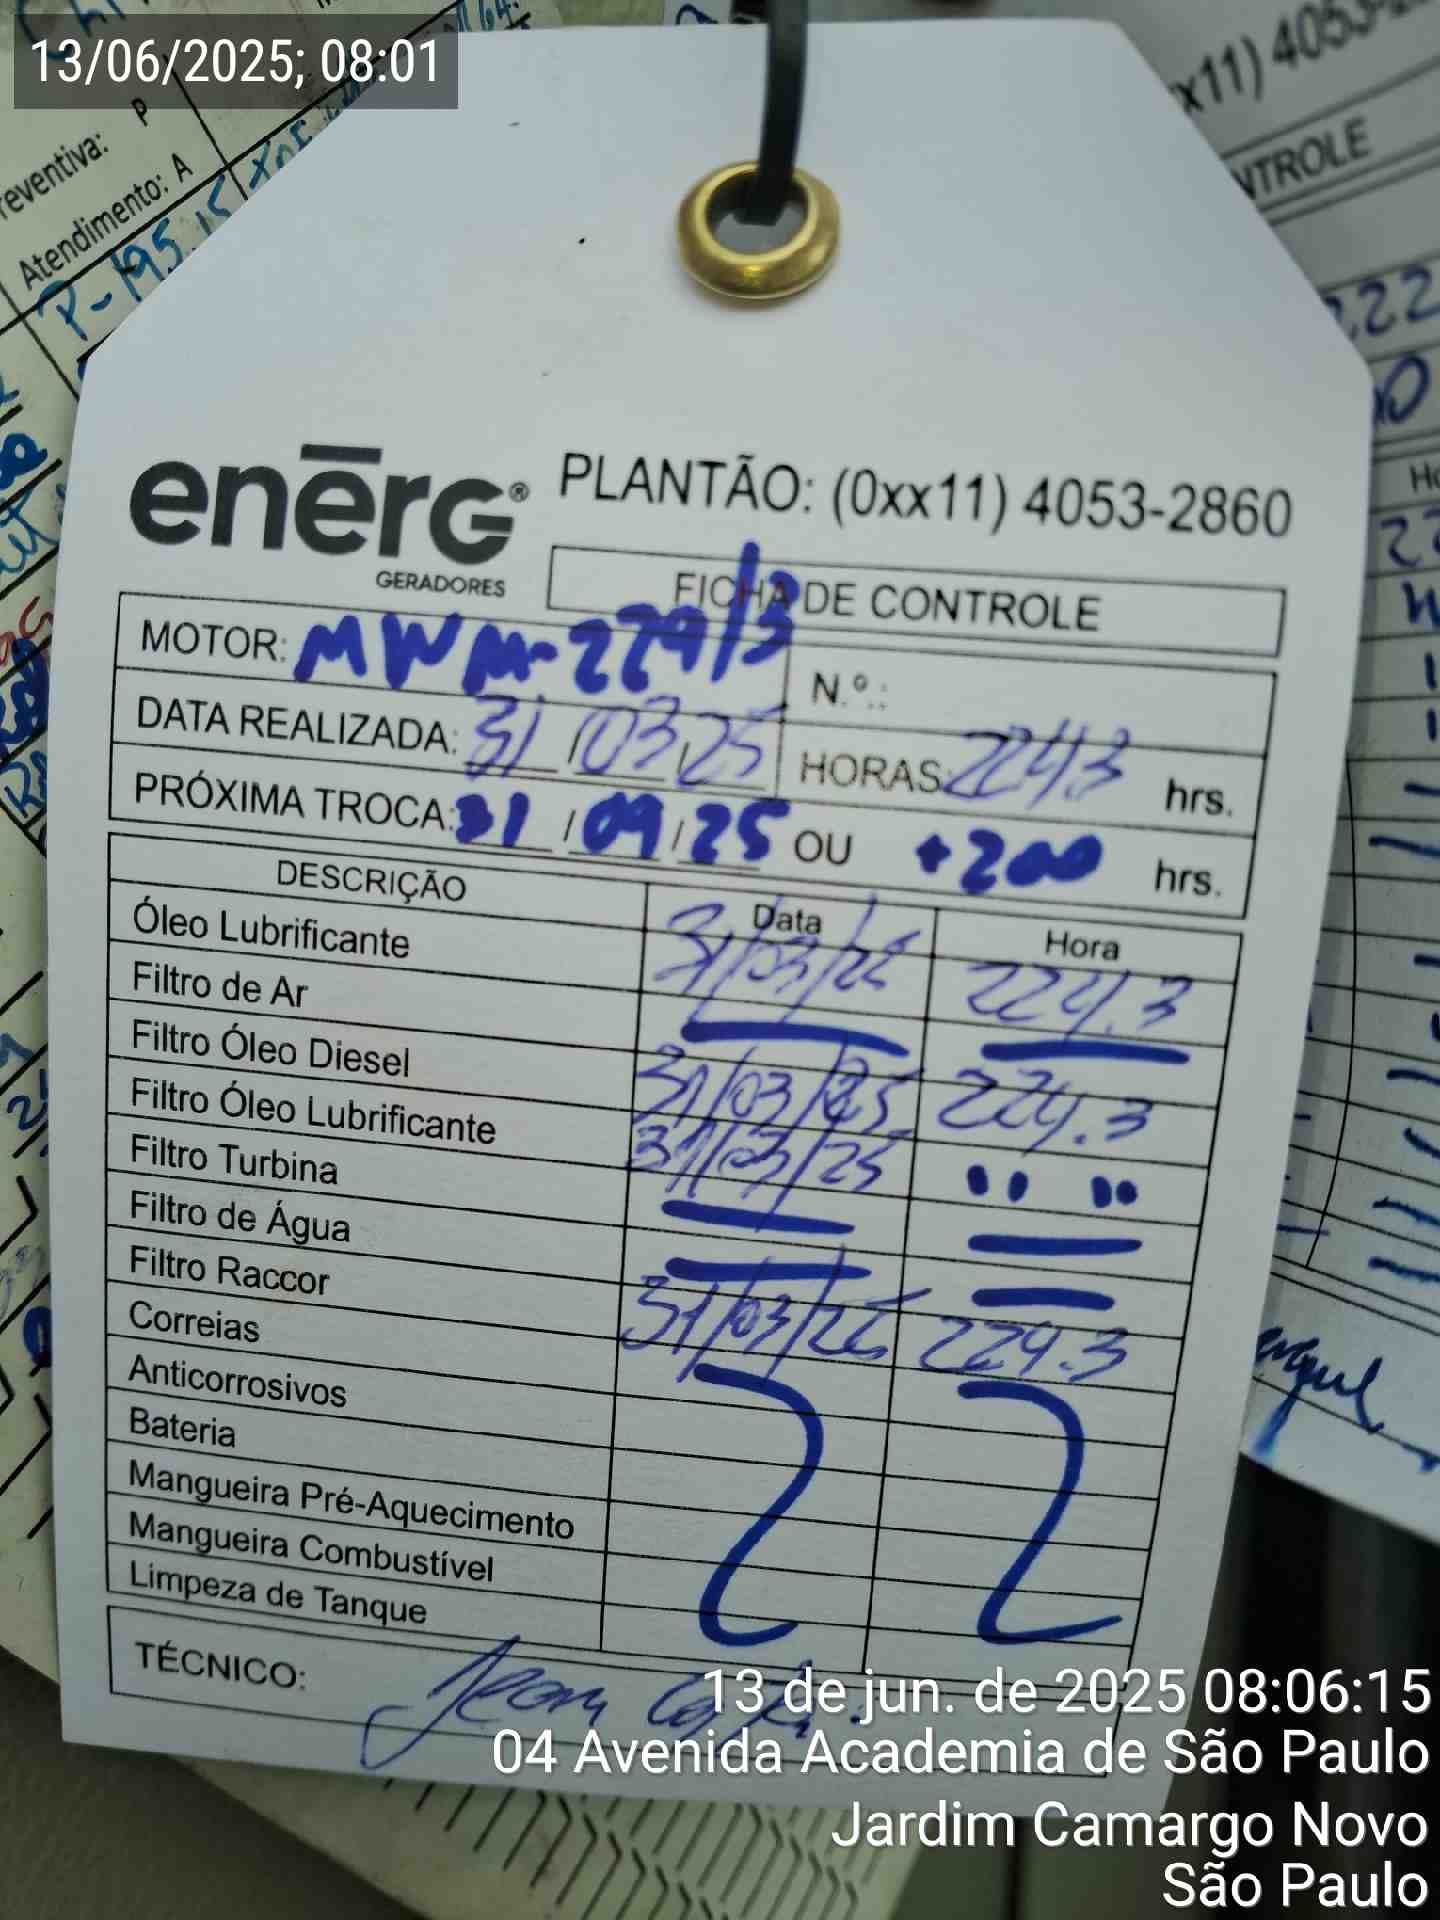 13/06/2025; 08:01
reventiva: P
Atendimento: A
P-195.15
NTROLE
enērG®
GERADORES
PLANTÃO: (0xx11) 4053-2860
FICHA DE CONTROLE
MOTOR: MWM-229/3 N.º.:
DATA REALIZADA: 31/03/25 HORAS: 224.3 hrs.
PRÓXIMA TROCA: 31/09/25 OU +200 hrs.
DESCRIÇÃO Data Hora
Óleo Lubrificante 31/03/25 224.3
Filtro de Ar
Filtro Óleo Diesel 31/03/25 224.3
Filtro Óleo Lubrificante 31/03/25 " "
Filtro Turbina
Filtro de Água
Filtro Raccor 31/03/25 224.3
Correias
Anticorrosivos
Bateria
Mangueira Pré-Aquecimento
Mangueira Combustível
Limpeza de Tanque
TÉCNICO: Jean
13 de jun. de 2025 08:06:15
04 Avenida Academia de São Paulo
Jardim Camargo Novo
São Paulo